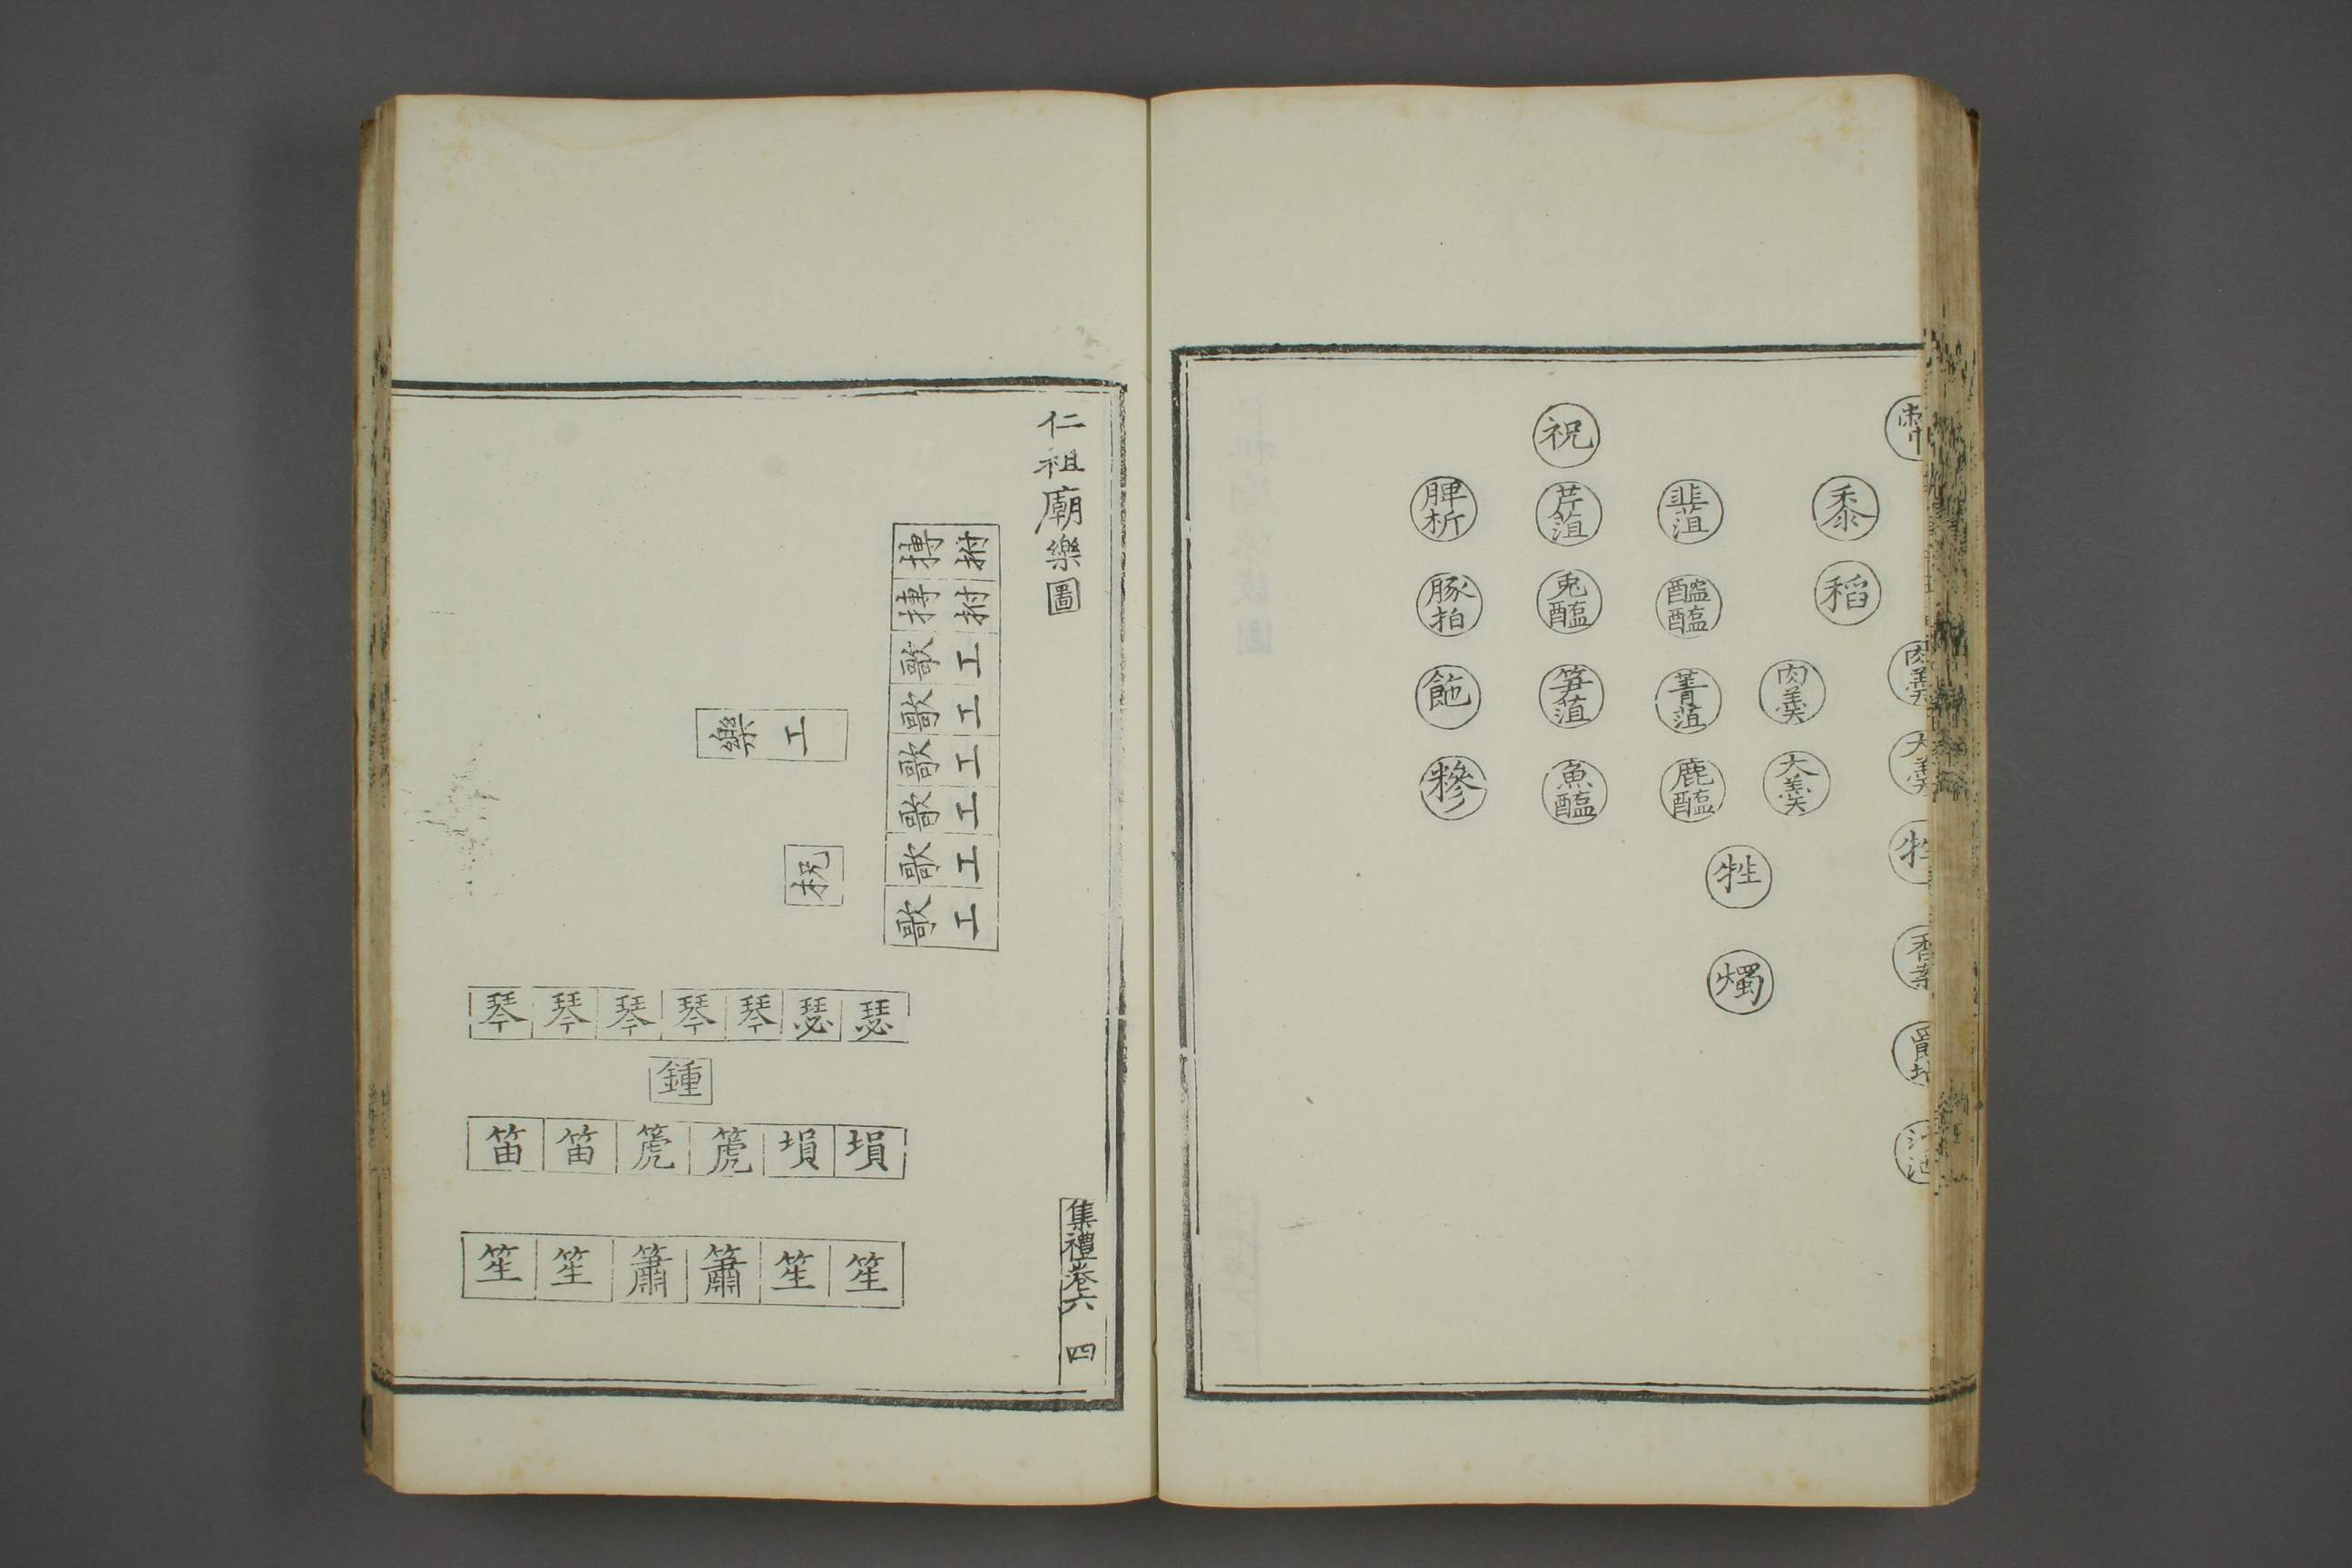 幣
肉羹
大羹
牲
香案
爵坫
沙池
黍
稻
肉羹
大羹
牲
燭
韮菹
醓醢
菁菹
鹿醢
祝
芹菹
兎醢
笋菹
魚醢
脾析
豚拍
飽
糝
仁祖廟樂圖
搏拊
搏拊
歌工
歌工
歌工
歌工
歌工
歌工
樂工
柷
琴 琴 琴 琴 琴 瑟 瑟
鍾
笛 笛 箎 箎 塤 塤
笙 笙 簫 簫 笙 笙
集禮卷六 四